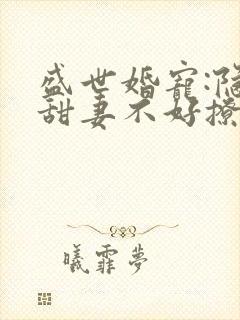 盛世婚寵:隐
甜妻不好撩
曦霏夢